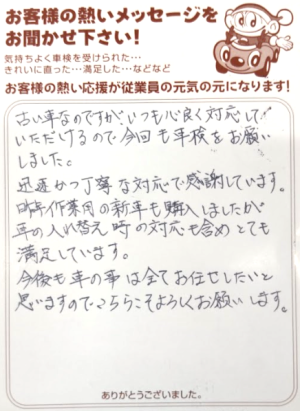 お客様の熱いメッセージを
お聞かせ下さい！
気持ちよく車検を受けられた…
きれいに直った…満足した…などなど
お客様の熱い応援が従業員の元気の元になります！
古い車なのですが、いつも心良く対応して
いただけるので今回も車検をお願い
しました。
迅速かつ丁寧な対応で感謝しています。
昨年作業用の新車も購入しましたが
車の入れ替え時の対応も含めとても
満足しています。
今後も車の事は全てお任せしたいと
思いますのでこちらこそよろしくお願いします。
ありがとうございました。